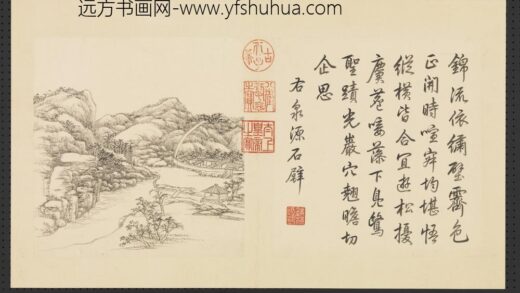 远方书画网-www.yfshuhua.com
錦流依繡壁霽色
正開時喧寂均堪悟
縱橫皆合宜遊松擾
藻下鳧鷖
聖蹟光巖穴翹瞻切
企思
右泉源石壁